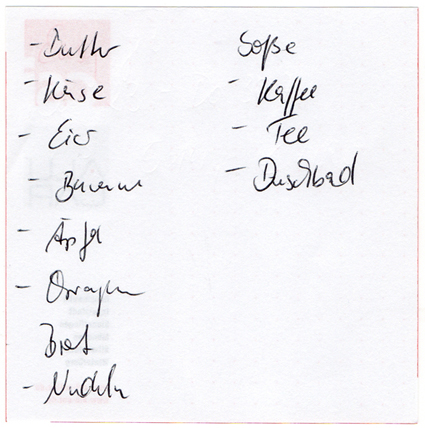 - Butter
- Käse
- Eier
- Bananen
- Äpfel
- Orangen
Brot
- Nudeln
Soße
- Kaffee
- Tee
- Duschbad